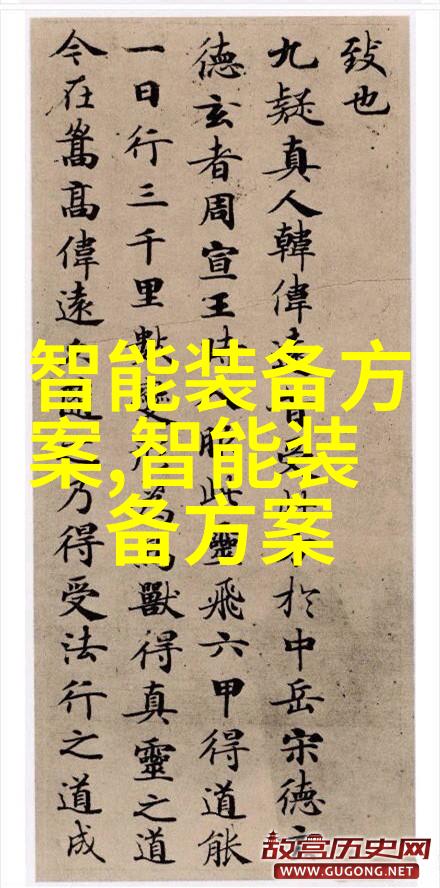 致也
九疑真人韓偉遠於中岳宋德玄
德玄者周宣王時人服此靈飛六甲得道能
一日行三千里數變為鳥獸得真靈之道
今在嵩高偉遠之乃得受法行之道成
智能装备方
案,智能装
备方案
故宫历史网
WWW.GUGONG.NET